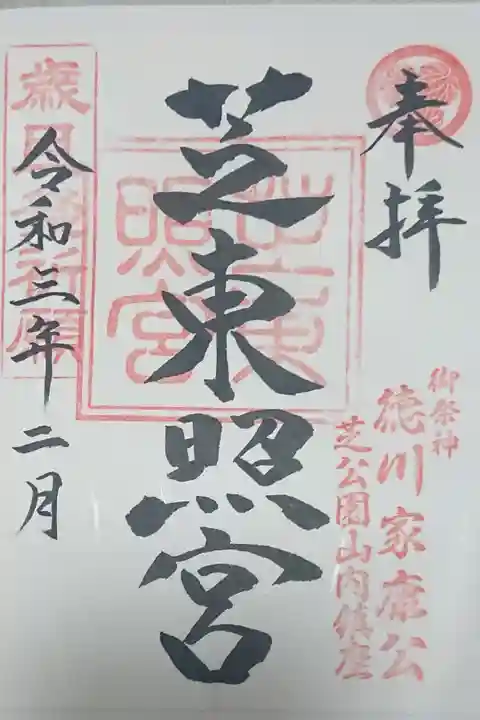 奉拝
御祭神
徳川家康公
芝公園山内鎮座
芝東照宮
芝東照宮
令和三年二月
祈願